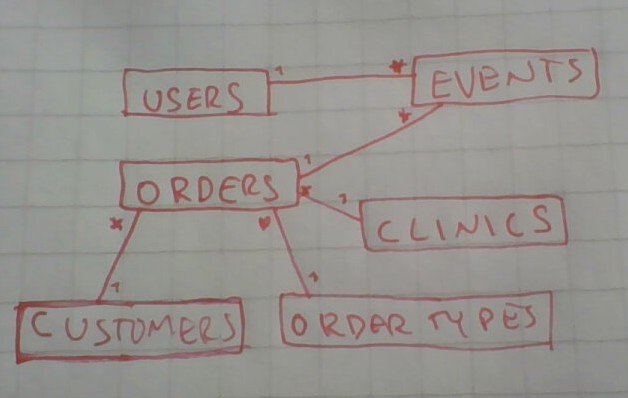 1 *
USERS EVENTS
*
1
ORDERS * 1
CLINICS
* *
1 1
CUSTOMERS ORDER TYPES